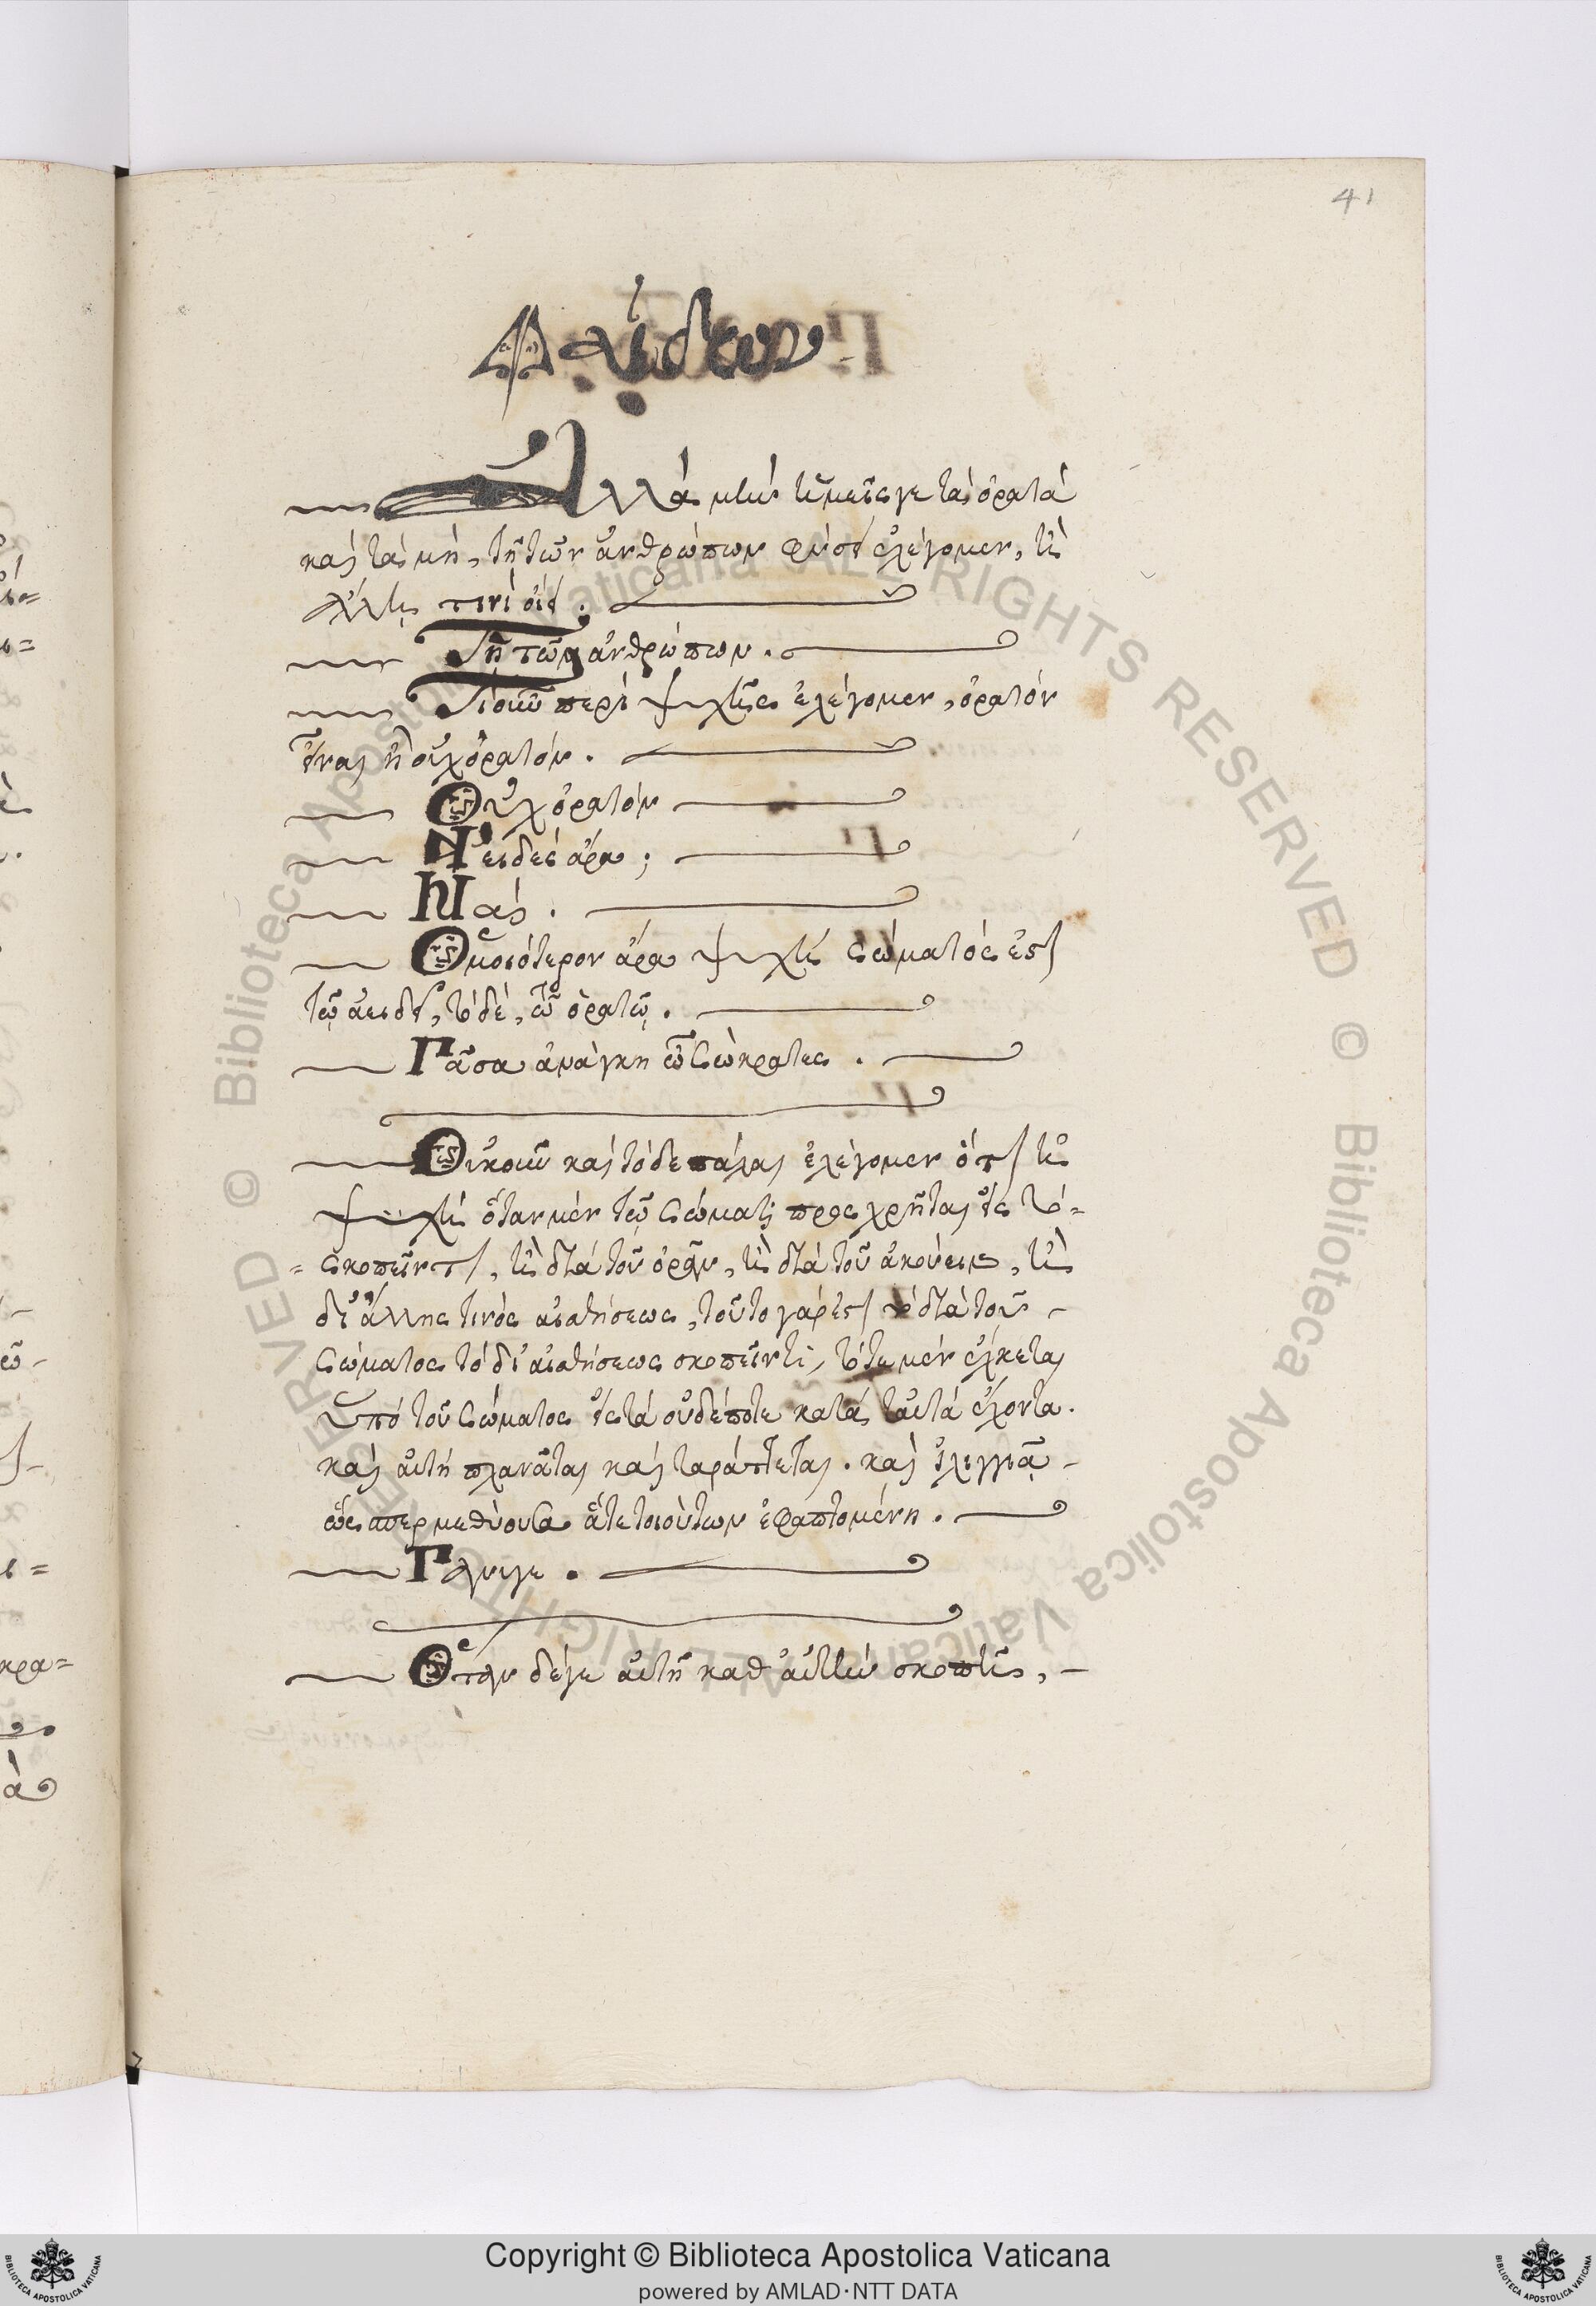 41
Φαίδων
Ἀλλὰ μὴν ἡμεῖς γε τὰ ὁρατὰ
καὶ τὰ μὴ, τῇ τῶν ἀνθρώπων φύσει ἐλέγομεν, ἢ
ἄλλῃ τινὶ οἴει.
Τῇ τῶν ἀνθρώπων.
Τί οὖν περὶ ψυχῆς ἐλέγομεν, ὁρατὸν
εἶναι ἢ οὐχ ὁρατόν.
Οὐχ ὁρατόν
Ἀειδὲς ἄρα;
Ναί.
Ὁμοιότερον ἄρα ψυχὴ σώματός ἐστι
τῷ ἀειδεῖ, τὸ δὲ, τῷ ὁρατῷ.
Πᾶσα ἀνάγκη ὦ Σώκρατες.
Οὐκοῦν καὶ τόδε πάλαι ἐλέγομεν ὅτι ἡ
ψυχὴ ὅταν μὲν τῷ σώματι προσχρῆται εἰς τό=
=σκοπεῖν τι, ἢ διὰ τοῦ ὁρᾷν, ἢ διὰ τοῦ ἀκούειν, ἢ
δι' ἄλλης τινὸς αἰσθήσεως, τοῦτο γάρ ἐστι τὸ διὰ τοῦ -
σώματος τὸ δι' αἰσθήσεως σκοπεῖν τι, τότε μὲν ἕλκεται
ὑπὸ τοῦ σώματος εἰς τὰ οὐδέποτε κατὰ ταὐτὰ ἔχοντα.
καὶ αὐτὴ πλανᾶται καὶ ταράττεται. καὶ ἰλιγγιᾷ -
ὥσπερ μεθύουσα ἅτε τοιούτων ἐφαπτομένη.
Πάνυ γε.
Ὅταν δέ γε αὐτὴ καθ' αὑτὴν σκοπῇ, -
© Biblioteca Apostolica Vaticana ALL RIGHTS RESERVED
© Biblioteca Apostolica Vaticana ALL RIGHTS RESERVED
Copyright © Biblioteca Apostolica Vaticana
powered by AMLAD·NTT DATA